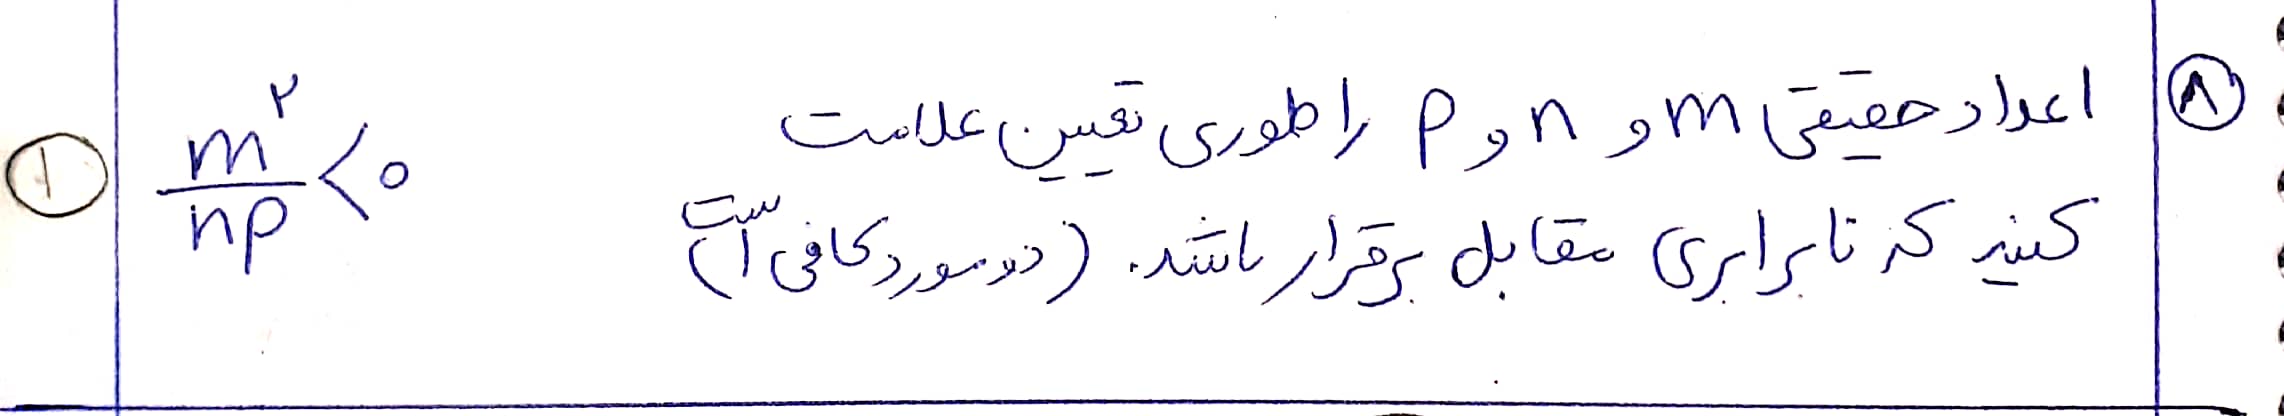 ۸ اعداد حقیقی m و n و p را طوری تعیین علامت
کنید که نابرابری مقابل برقرار باشد. (دو مورد کافی است)
m²/np < ۰
۱